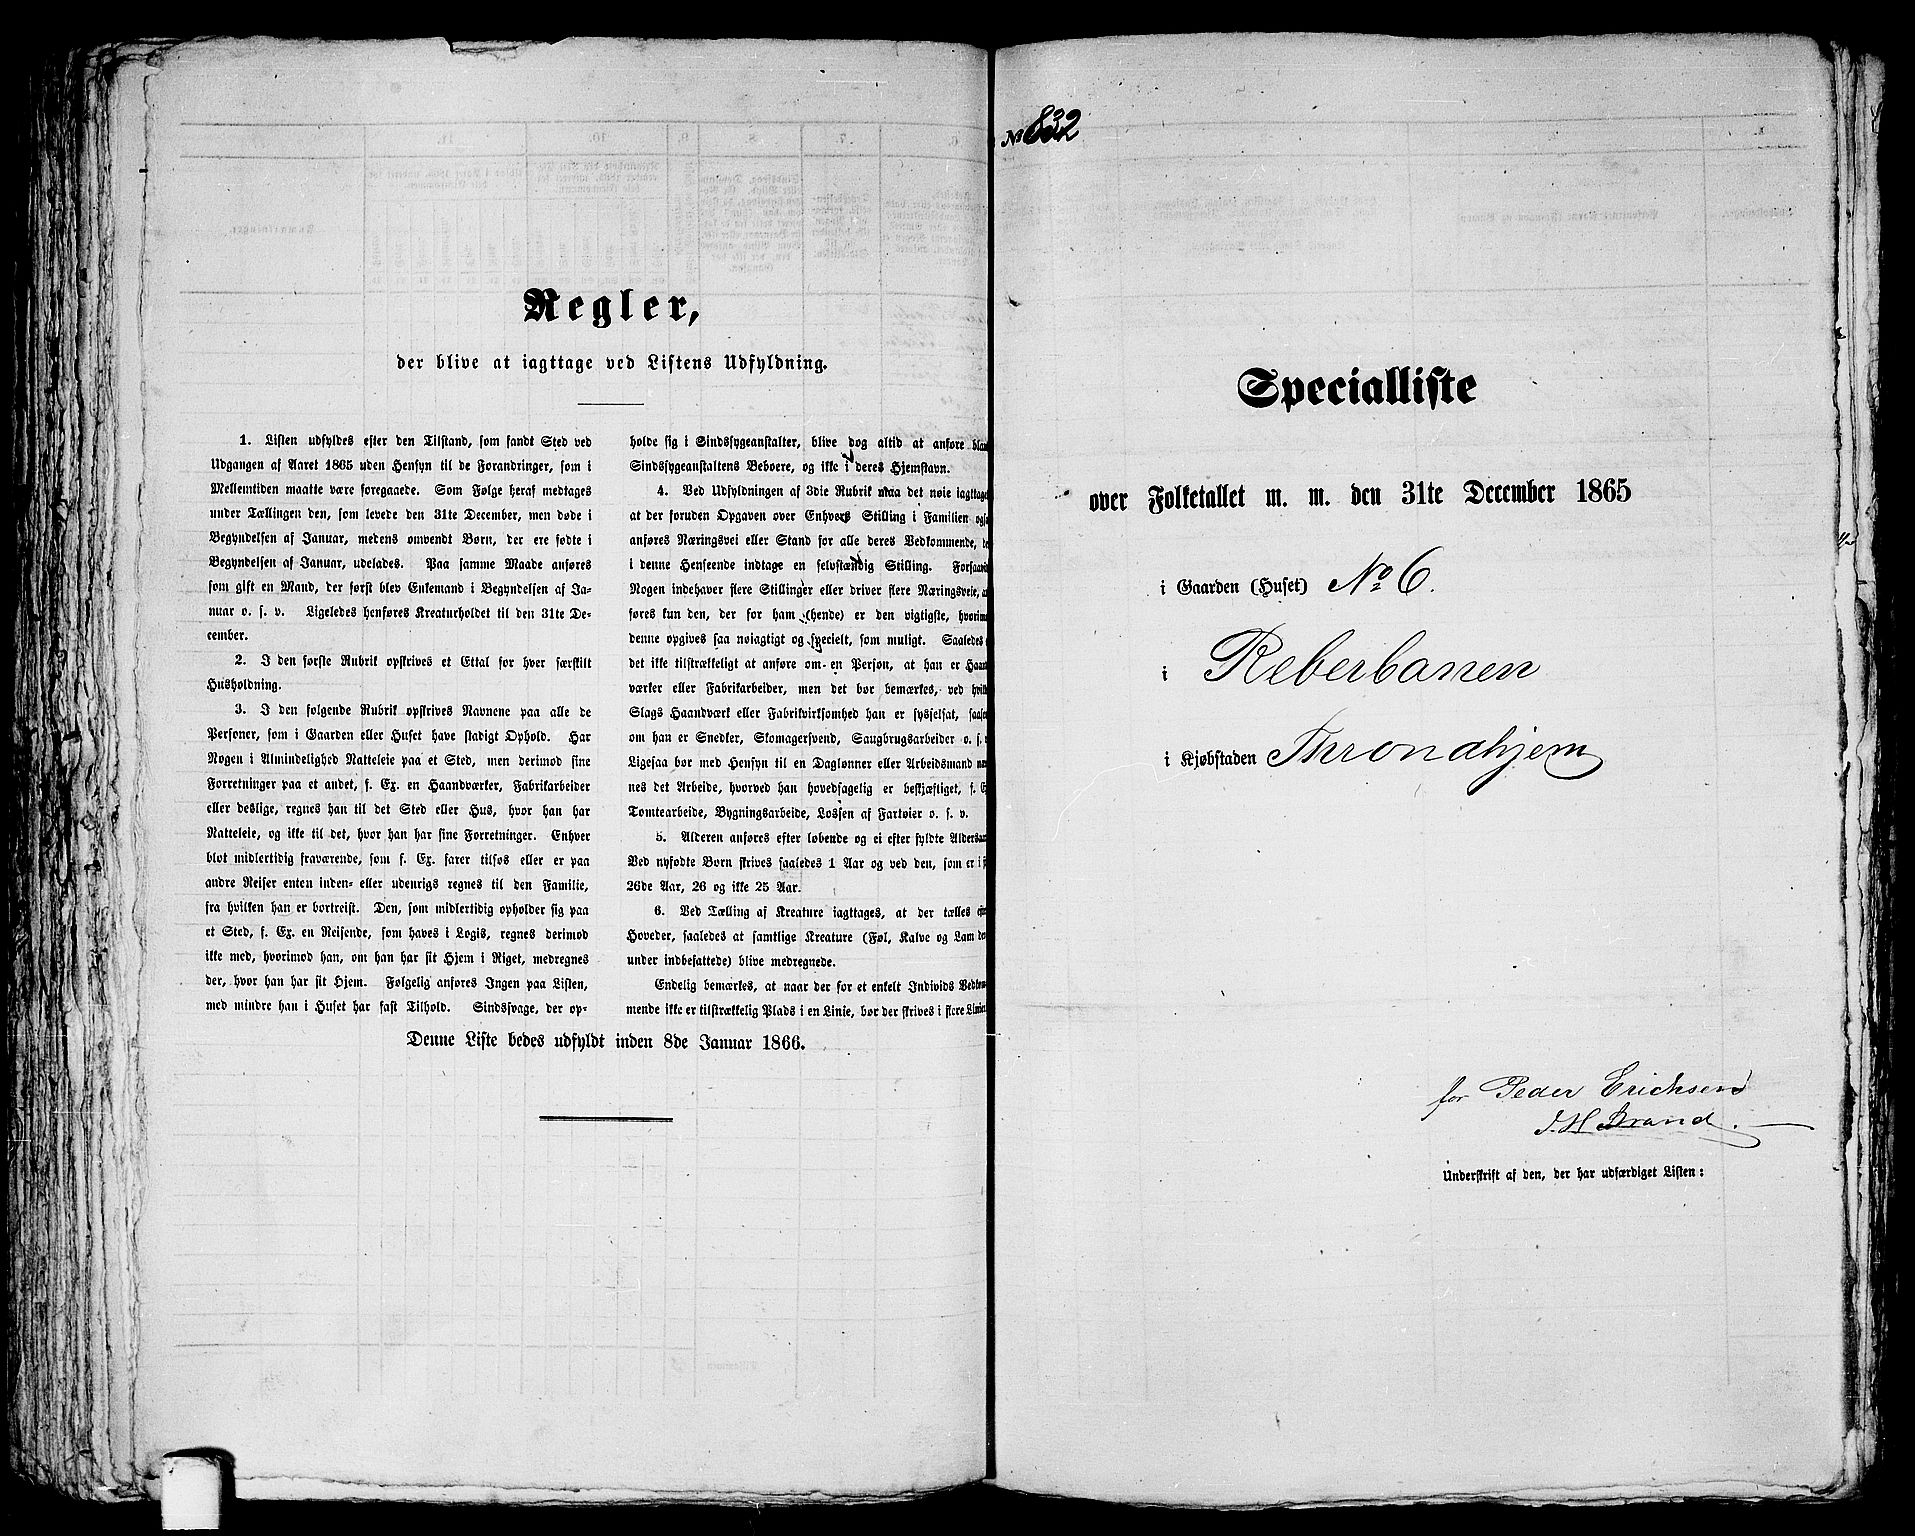 Regler,
der blive at iagttage ved Listens Udfyldning.
1. Listen udfyldes efter den Tilstand, som fandt Sted ved
Udgangen af Aaret 1865 uden Hensyn til de Forandringer, som i
Mellemtiden maatte være foregaaede. Som Følge heraf medtages
under Tællingen den, som levede den 31te December, men døde i
Begyndelsen af Januar, medens omvendt Børn, der ere fødte i
Begyndelsen af Januar, udelades. Paa samme Maade anføres
som gift en Mand, der først blev Enkemand i Begyndelsen af Ja-
nuar o. s. v. Ligeledes henføres Kreaturholdet til den 31te De-
cember.
2. I den første Rubrik opskrives et Ettal for hver særskilt
Husholdning.
3. I den følgende Rubrik opskrives Navnene paa alle de
Personer, som i Gaarden eller Huset have stadigt Ophold. Har
Nogen i Almindelighed Natteleie paa et Sted, men derimod sine
Forretninger paa et andet, f. Ex. en Haandværker, Fabrikarbeider
eller deslige, regnes han til det Sted eller Hus, hvor han har
Natteleie, og ikke til det, hvor han har sine Forretninger. Enhver
blot midlertidig fraværende, som f. Ex. farer tilsøs eller er paa
andre Reiser enten inden- eller udenrigs regnes til den Familie,
fra hvilken han er bortreist. Den, som midlertidig opholder sig paa
et Sted, f. Ex. en Reisende, som haves i Logis, regnes derimod
ikke med, hvorimod han, om han har sit Hjem i Riget, medregnes
der, hvor han har sit Hjem. Følgelig anføres Ingen paa Listen,
med mindre han i Huset har fast Tilhold. Sindssvage, der op-
holde sig i Sindssygeanstalter, blive dog altid at anføre blan
Sindssygeanstaltens Beboere, og ikke i deres Hjemstavn.
4. Ved Udfyldningen af 3die Rubrik maa det nøie iagttage
at der foruden Opgaven over Enhvers Stilling i Familien ogsa
anføres Næringsvei eller Stand for alle deres Vedkommende, de
i denne Henseende indtage en selvstændig Stilling. Forsaavid
Nogen indehaver flere Stillinger eller driver flere Næringsveie, a
føres kun den, der for ham (hende) er den vigtigste, hvorim
denne opgives saa nøiagtigt og specielt, som muligt. Saaledes
det ikke tilstrækkeligt at anføre om en Person, at han er Haand
værker eller Fabrikarbeider, men det bør bemærkes, ved hvilk
Slags Haandværk eller Fabrikvirksomhed han er sysselsat, saaso
om han er Snedker, Skomagersvend, Saugbrugsarbeider o. s. v
Ligesaa bør med Hensyn til en Daglønner eller Arbeidsmand næ
nes det Arbeide, hvorved han hovedsagelig er beskjæftiget, f. E
Tomtearbeide, Bygningsarbeide, Lossen af Fartøier o. s. v.
5. Alderen anføres efter løbende og ei efter fyldte Aldersaar
Ved nyfødte Børn skrives saaledes 1 Aar og ved den, som er i s
26de Aar, 26 og ikke 25 Aar.
6. Ved Tælling af Kreature iagttages, at der tælles
Hoveder, saaledes at samtlige Kreature (Føl, Kalve og Lam der
under indbefattede) blive medregnede.
Endelig bemærkes, at naar der for et enkelt Individs Vedkom-
mende ikke er tilstrækkelig Plads i en Linie, bør der skrives i flere Linier.
Denne Liste bedes udfyldt inden 8de Januar 1866.
No 832
Specialliste
over Folketallet m. m. den 31te December 1865
i Gaarden (Huset) No 6.
i Reberbanen
i Kjøbstaden Throndhjem
for Peder Erichsen
J. H. Brand.
Underskrift af den, der har udfærdiget Listen: